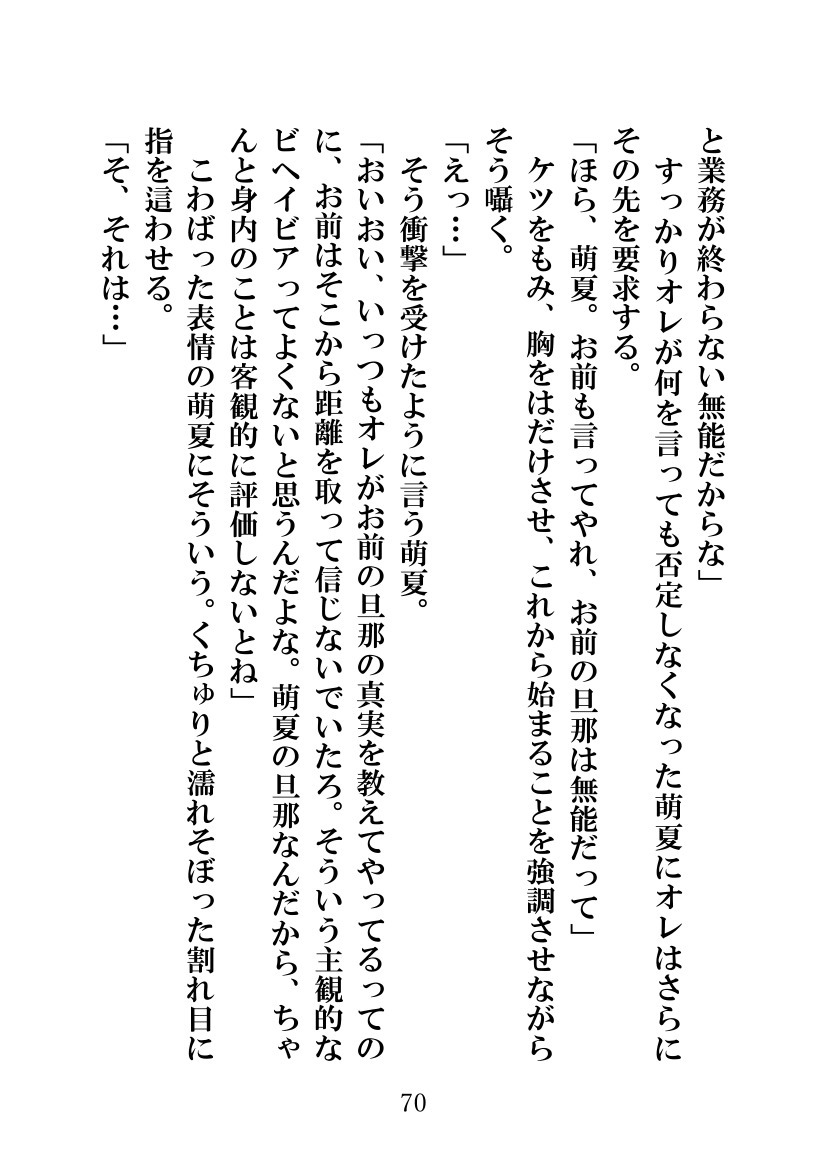 と業務が終わらない無能だからな」
　すっかりオレが何を言っても否定しなくなった萌夏にオレはさらに
その先を要求する。
「ほら、萌夏。お前も言ってやれ、お前の旦那は無能だって」
　ケツをもみ、胸をはだけさせ、これから始まることを強調させながら
そう囁く。
「えっ…」
　そう衝撃を受けたように言う萌夏。
「おいおい、いっつもオレがお前の旦那の真実を教えてやってるっての
に、お前はそこから距離を取って信じないでいたろ。そういう主観的な
ビヘイビアってよくないと思うんだよな。萌夏の旦那なんだから、ちゃ
んと身内のことは客観的に評価しないとね」
　こわばった表情の萌夏にそういう。くちゅりと濡れそぼった割れ目に
指を這わせる。
「そ、それは…」
70